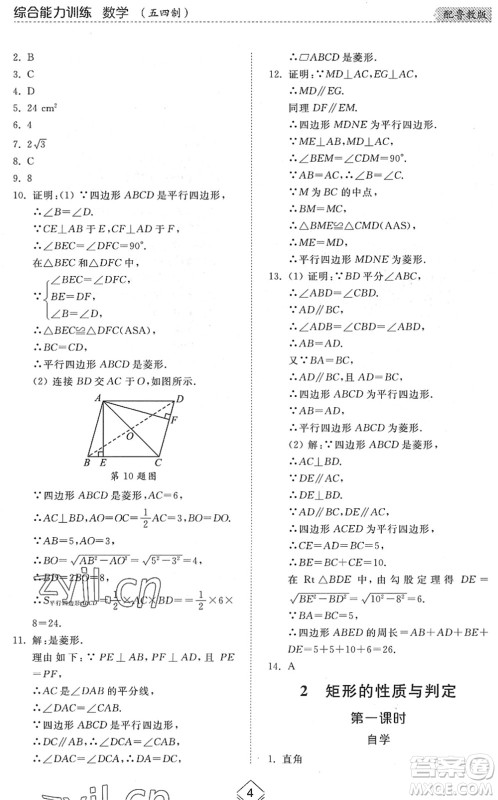 综合能力训练 数学 (五四制)
配鲁教版
2. B
3. C
4. D
5. 24 cm²
6. 4
7. 2√3
8. C
9. 8
10. 证明:(1)∵四边形 ABCD 是平行四边形,
∴∠B=∠D.
∵CE⊥AB 于 E,CF⊥AD 于 F,
∴∠BEC=∠DFC=90°.
在△BEC 与△DFC 中,
∵{∠BEC=∠DFC,
BE=DF,
∠B=∠D,
∴△BEC≌△DFC(ASA),
∴BC=CD,
∴平行四边形 ABCD 是菱形.
(2) 连接 BD 交 AC 于 O,如图所示.
A
D
F
O
B
E
C
第 10 题图
∵四边形 ABCD 是菱形,AC=6,
∴AC⊥BD,AO=OC=1/2AC=3,BO=DO.
∵AB=5,
∴BO=√(AB²-AO²)=√(5²-3²)=4,
∴BD=2BO=8,
∴S平行四边形ABCD=1/2×AC×BD=1/2×6×
8=24.
11. 解:是菱形.
理由如下:∵AC 平分∠DAB,
∴AC 是∠DAB 的平分线,
∴∠DAC=∠BAC.
∵四边形 ABCD 是平行四边形,
∴DC∥AB,
∴∠DCA=∠BAC,
∴∠DAC=∠DCA,∴DA=DC,
∴▱ABCD 是菱形.
12. 证明:∵MD⊥AC,EF⊥AC,
∴MD∥EF.
同理 DF∥EM.
∴四边形 MDNE 为平行四边形.
∵ME⊥AB,MD⊥AC,
∴∠BEM=∠CDM=90°.
∵AB=AC,∴∠B=∠C.
∵M 为 BC 的中点,
∴BM=MC,
∴△BEM≌△CDM(AAS),
∴ME=MD,
∴四边形 MDNE 为菱形.
13. (1) 证明:∵BD 平分∠ABC,
∴∠ABD=∠DBC.
∵AB=AD,
∴∠ADB=∠ABD,
∴∠ADB=∠DBC,
∴AD∥BC.
又∵BA=BC,
∴AD=BC,
∴AD∥BC,且 AD=BC,
∴四边形 ABCD 为平行四边形.
∵AB=AD,
∴平行四边形 ABCD 为菱形.
(2) 解:∵四边形 ABCD 为菱形,
∴DC=BC=5,AB∥CD.
∵AB∥DE,AD∥BC,
∴四边形 ACED 为平行四边形,
∴CE=AD=BC=5,
∴BE=10.
在 Rt△BDE 中,由勾股定理得 DE=
√(BE²-BD²)=√(10²-8²)=6,
∴四边形 ABED 的周长=AD+AB+BE+
DE=5+5+10+6=26.
14. A
2 矩形的性质与判定
第一课时
自学
1. 直角
4
zyjl.cn
zyjl.cn